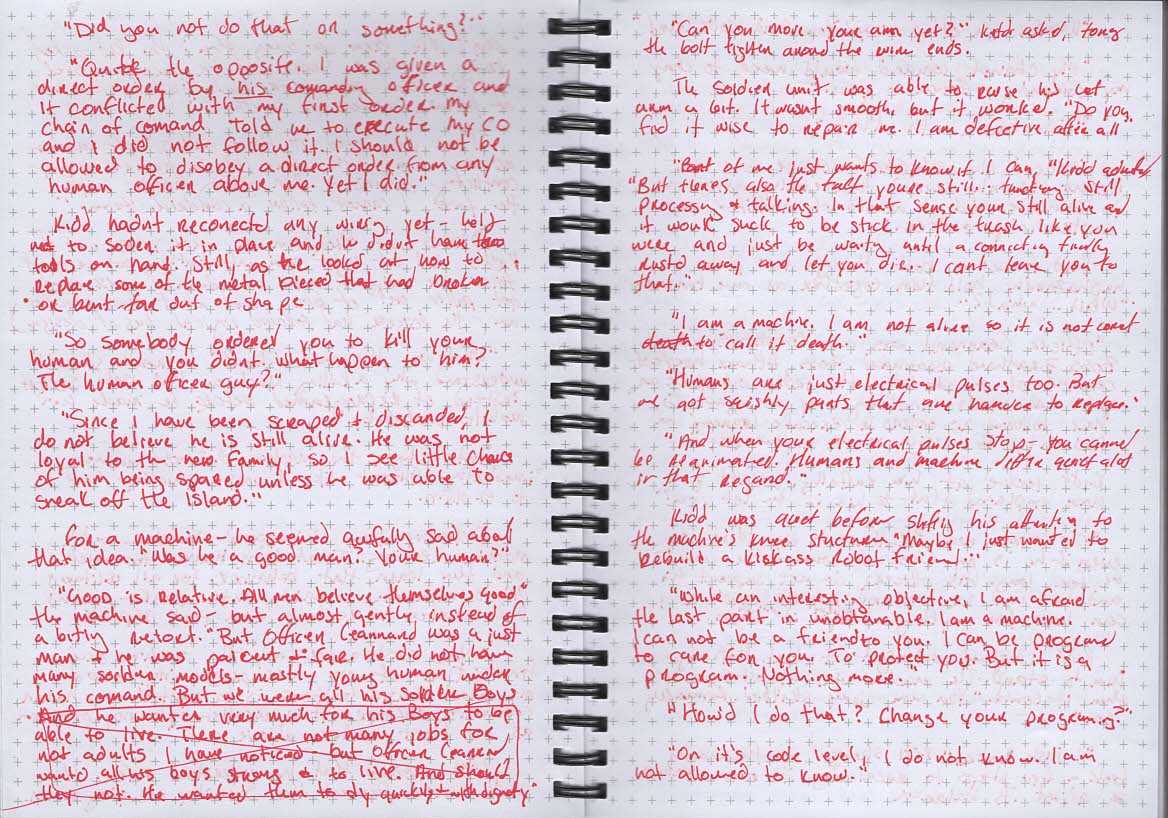 "Did you not do that on something?"
"Quite the opposite. I was given a
direct order by his comandng officer and
it conflicted with my first order my
chain of comand told me to execute my CO
and I did not follow it. I should not be
allowed to disobey a direct order from any
human officer above me. Yet I did."
Kidd hadnt reconectd any wirng yet - held
to soder it in place and he didnt have
tools on hand. Still, as he looked at how to
replace some of the metal pieced that had broken
or bent far out of shape
"So somebody ordered you to kill your
human and you didnt. What happen to him?
The human officer guy?"
"Since I have been scraped & discarded, I
do not believe he is still alive. He was not
loyal to the new family, so I see little chance
of him being spared unless he was able to
sneak off the island."
For a machine - he seemed awfully sad about
that idea. "Was he a good man? Your human?"
"Good is relative. All men believe themselves good"
the machine said - but almost gently instead of
a biting retort. "But Officer Leannand was a just
man & he was & fair. He did not have
many soldier models - mostly young human under
his comand. But we were all his Soldier Boys
And he wanted very much for his Boys to be
able to live. There are not many jobs for
not adults I have noticed - but Officer
wantd all his boys strong & to live. And should
they not. He wanted them to dy quickly & with dignity"
"Can you move your arm yet?" Kidd asked,
the bolt tighten around the wire ends.
The Soldier unit was able to raise his
arm a bit. It wasnt smooth, but it worked. "Do you
find it wise to repair me. I am defective after all
"Part of me just wants to know if I can," Kidd
"But theres also the fact youre still... functiong. Still
processng & talking. In that sense your still alive and
it would suck to be stick in the trash like you
were and just be waitng until a connecting finally
rustd away and let you die. I cant leave you to
that."
"I am a machine. I am not alive so it is not corect
death to call it death."
"Humans are just electrical pulses too. But
we got squishly parts that are harder to replace."
"And when your electrical pulses stop - you cannot
be reanimated. Humans and machine differ quiet alot
in that regard."
Kidd was quiet before shiftig his attention to
the machine's knee structure "Maybe I just wanted to
rebuild a kickass Robot friend."
"While an interesting objective, I am afraid
the last part in unobtanable. I am a machine.
I can not be a friend to you. I can be programd
to care for you. To protect you. But it is a
program. Nothing more.
"How'd I do that? Change your programing?"
"On it's code level, I do not know. I am
not allowed to know."